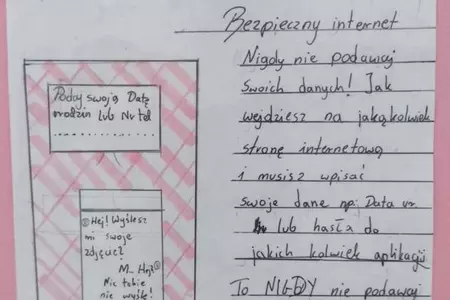 Bezpieczny internet
Nigdy nie podawaj
Swoich danych! Jak
wejdziesz na jakąkolwiek
stronę internetową
i musisz wpisać
swoje dane np: Data ur.
lub hasła do
jakich kolwiek aplikacji
To NIGDY nie podawaj
Podaj swoją Datę
urodzin lub Nr tel
..............
Hej! Wyślesz
mi swoje
zdjęcie?
M_ Hej!
Nic tobie
nie wyślę!